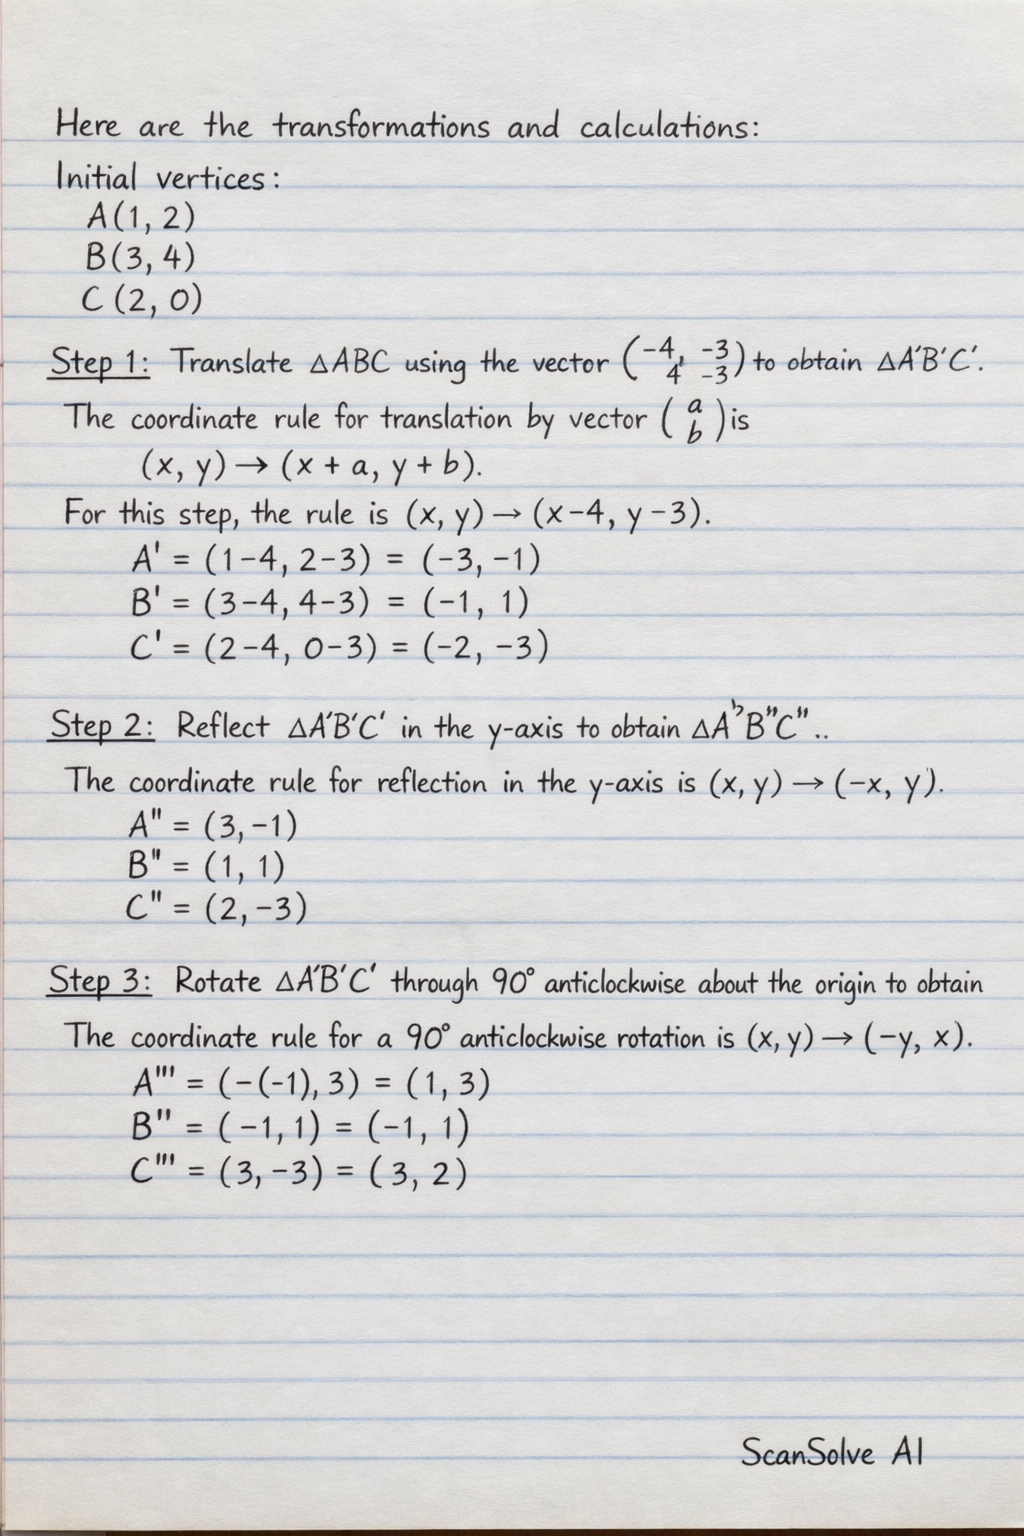 Here are the transformations and calculations:
Initial vertices:
A(1, 2)
B(3, 4)
C(2, 0)
Step 1: Translate △ABC using the vector (-4, -3 4 -3) to obtain △A'B'C'.
The coordinate rule for translation by vector (a b) is
(x, y) → (x + a, y + b).
For this step, the rule is (x, y) → (x-4, y-3).
A' = (1-4, 2-3) = (-3, -1)
B' = (3-4, 4-3) = (-1, 1)
C' = (2-4, 0-3) = (-2, -3)
Step 2: Reflect △A'B'C' in the y-axis to obtain △A"B"C"..
The coordinate rule for reflection in the y-axis is (x, y) → (-x, y).
A" = (3, -1)
B" = (1, 1)
C" = (2, -3)
Step 3: Rotate △A'B'C' through 90° anticlockwise about the origin to obtain
The coordinate rule for a 90° anticlockwise rotation is (x, y) → (-y, x).
A''' = (-(-1), 3) = (1, 3)
B" = (-1, 1) = (-1, 1)
C''' = (3, -3) = (3, 2)
ScanSolve AI